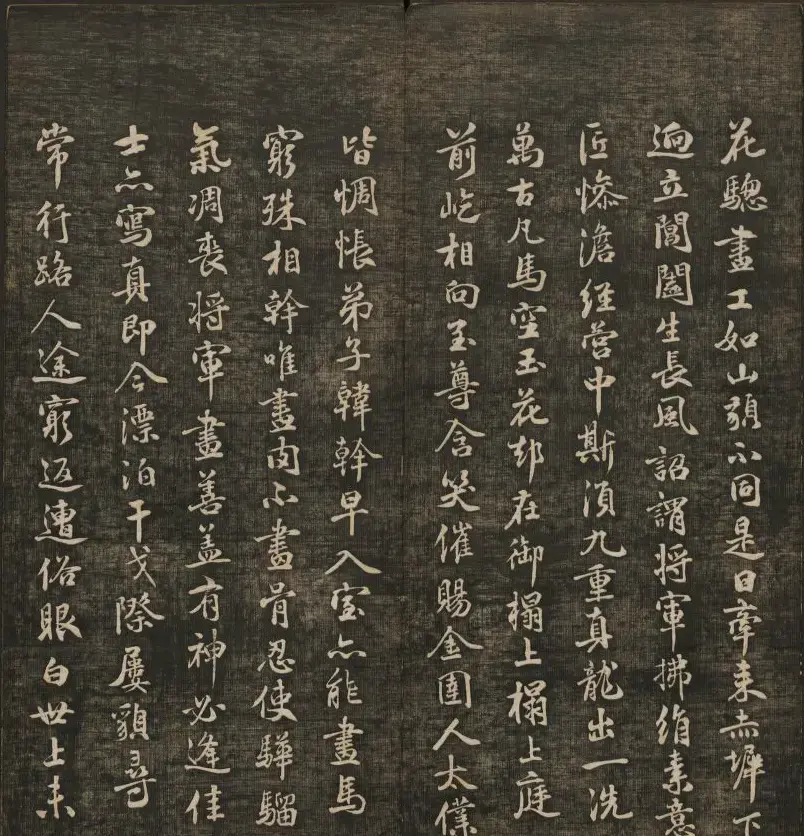 花驄畫工如山貌不同是日牽来赤墀下
迥立閶闔生長風詔謂将軍拂絹素意
匠慘澹經營中斯須九重真龍出一洗
萬古凡馬空玉花却在御榻上榻上庭
前屹相向至尊含笑催賜金圉人太僕
皆惆悵弟子韓幹早入室亦能畫馬
窮殊相幹唯畫肉不畫骨忍使驊騮
氣凋喪将軍畫善蓋有神必逢佳
士亦寫真即今漂泊干戈際屢貌尋
常行路人途窮返遭俗眼白世上未